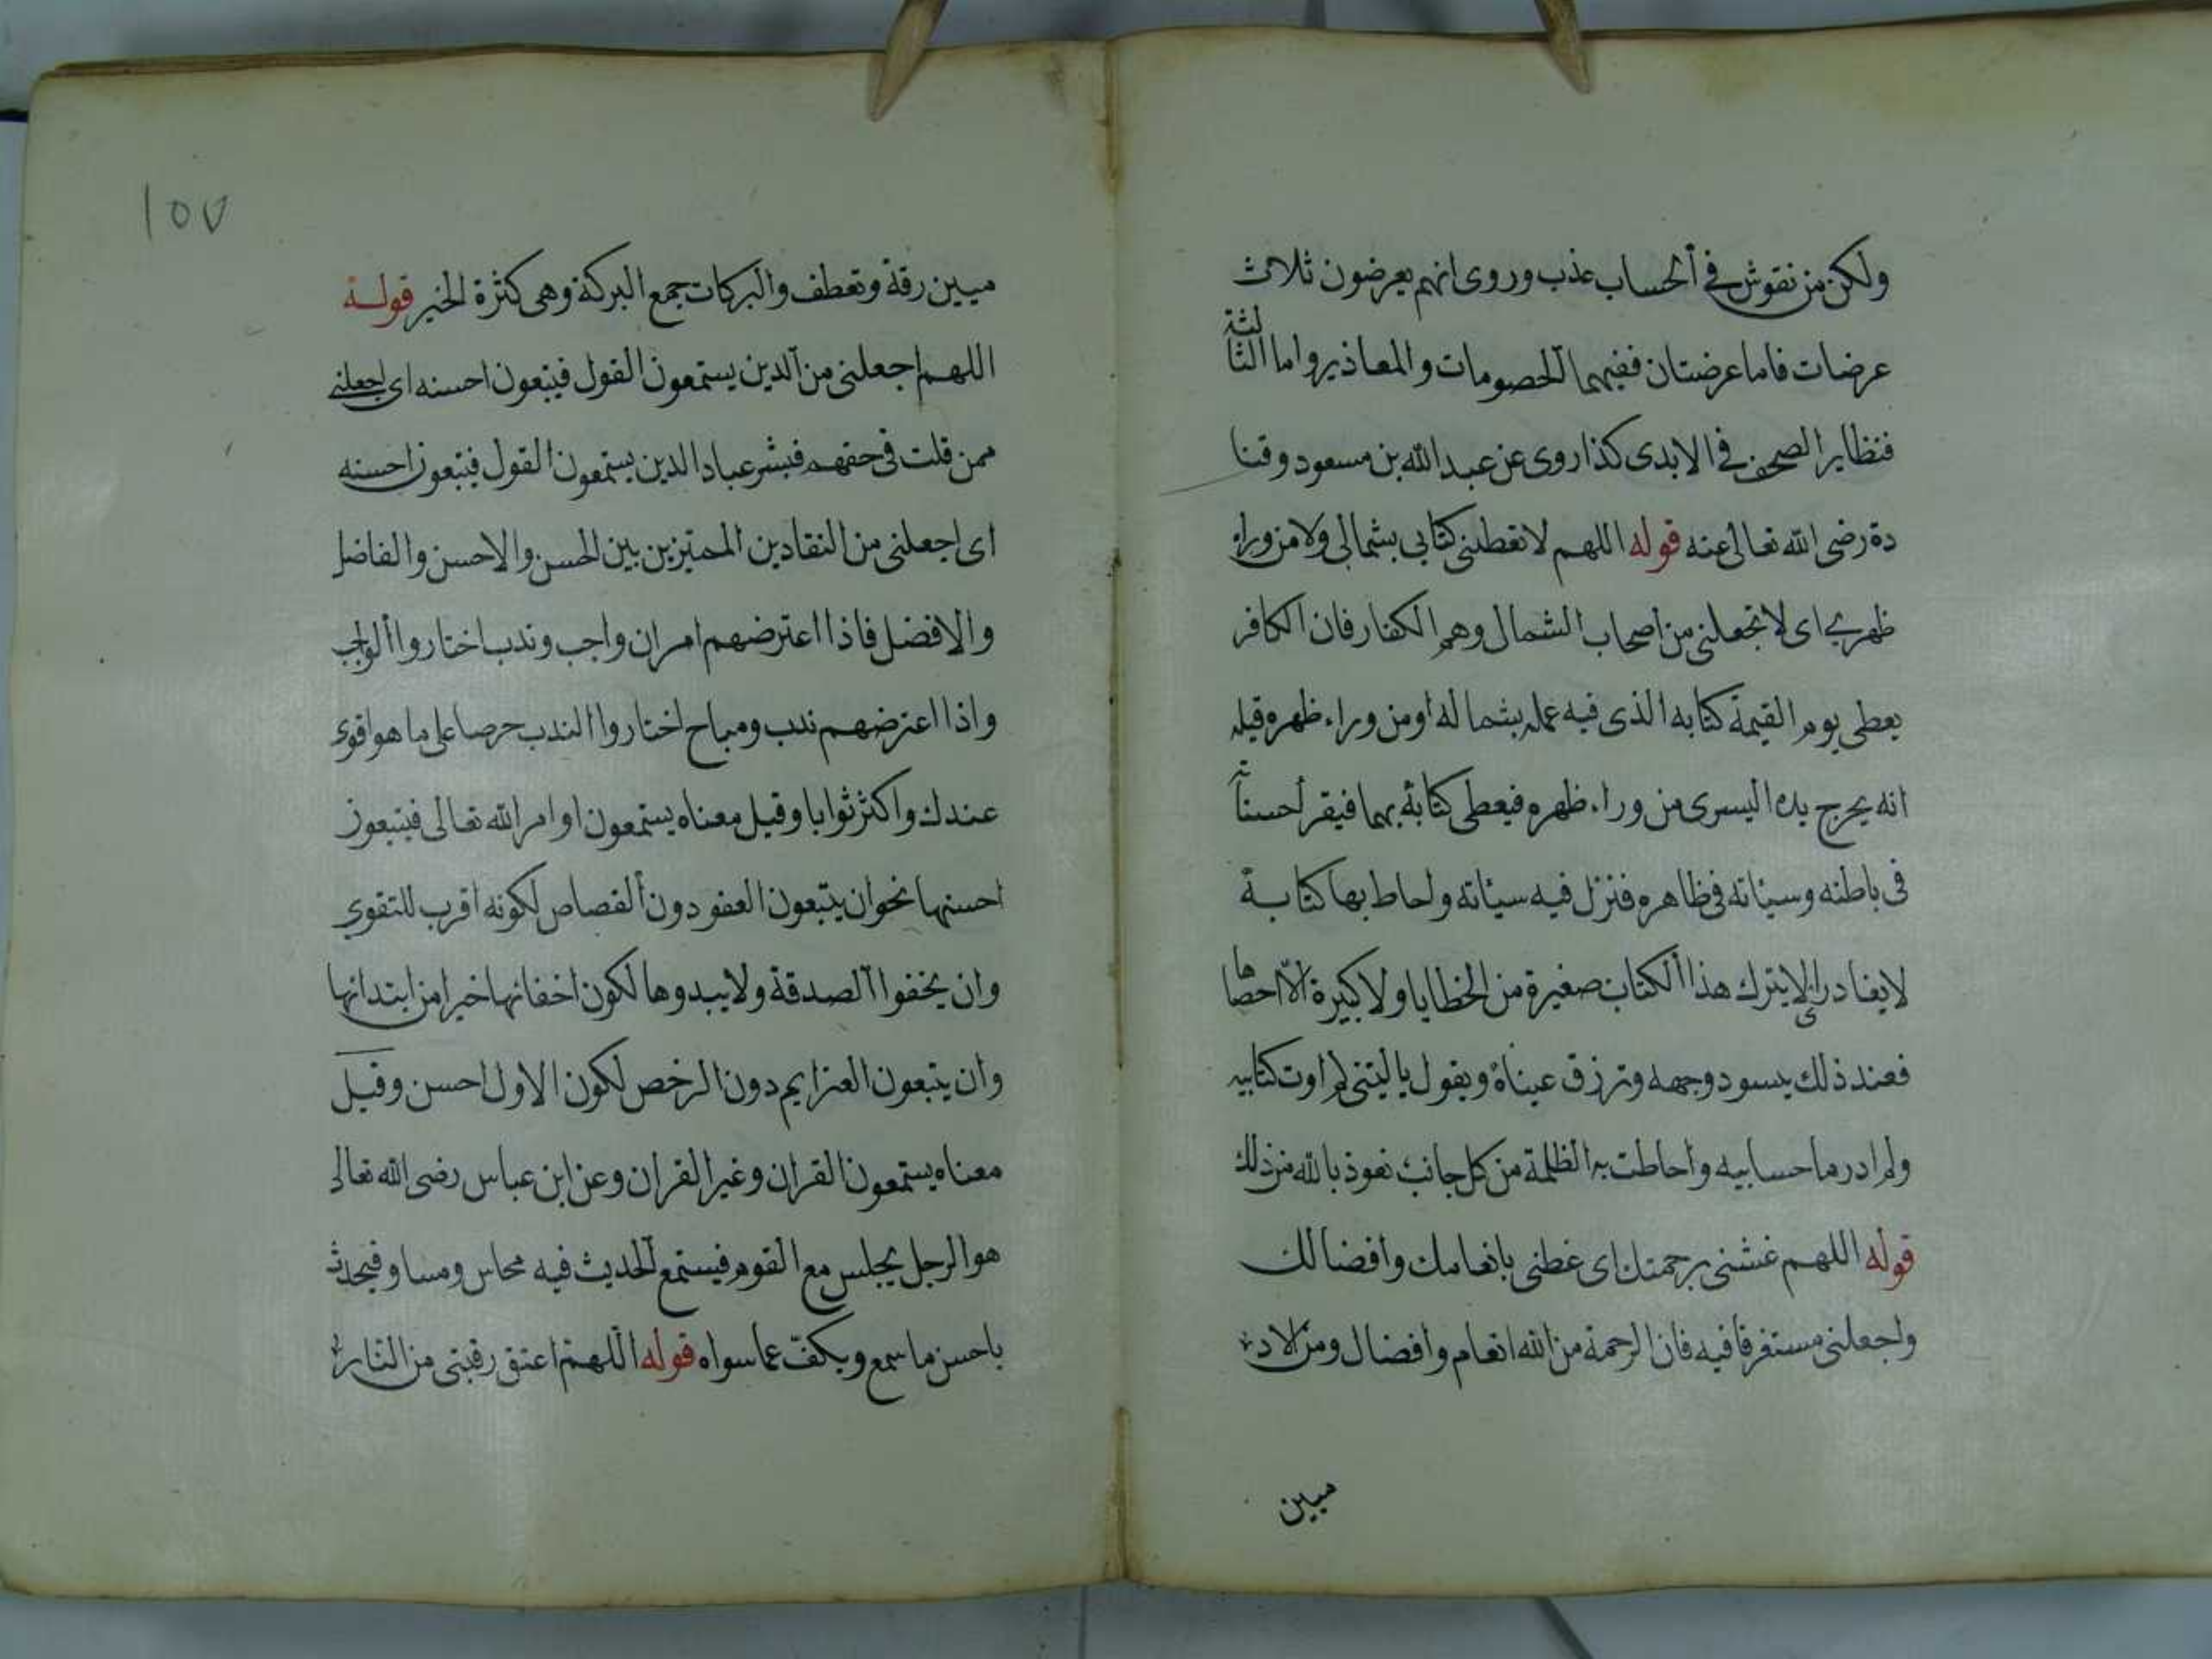 ولكن من نقوش في الحساب عذب وروى انهم يعرضون ثلاث
عرضات فاما عرضتان ففيهما الخصومات والمعاذير واما الثالثة
فتطاير الصحف في الايدى كذا روى عن عبد الله بن مسعود وقتا
دة رضى الله تعالى عنه قوله اللهم لا تعطنى كتابى بشمالى ولا من وراء
ظهرى اى لا تجعلنى من اصحاب الشمال وهم الكفار فان الكافر
يعطى يوم القيمة كتابه الذى فيه عمله بشماله او من وراء ظهره قيل
انه يخرج يده اليسرى من وراء ظهره فيعطى كتابه بها فيقر أحسناته
فى باطنه وسيئاته فى ظاهره فنزل فيه سيئاته واحاط بها كتابة
لا يغادر اى لا يترك هذا الكتاب صغيرة من الخطايا ولا كبيرة الا احصاها
فعند ذلك يسود وجهه وتزرق عيناه ويقول يا ليتنى لم اوت كتابيه
ولم ادر ما حسابيه واحاطت به الظلمة من كل جانب نعوذ بالله من ذلك
قوله اللهم غشنى برحمتك اى غطنى بانعامك وافضالك
واجعلنى مستغرقا فيه فان الرحمة من الله انعام وافضال ومن الاد
ميين
١٥٧
ميين رقة وتعطف والبركات جمع البركة وهى كثرة الخير قوله
اللهم اجعلنى من الذين يستمعون القول فيتبعون احسنه اى اجعلنى
ممن قلت فى حقهم فبشر عباد الذين يستمعون القول فيتبعون احسنه
اى اجعلنى من النقادين المميزين بين الحسن والاحسن والفاضل
والافضل فاذا اعترضهم امران واجب وندب اختاروا الواجب
واذا اعترضهم ندب ومباح اختاروا الندب حرصا على ما هو اقوى
عندك واكثر ثوابا وقيل معناه يستمعون اوامر الله تعالى فيتبعون
احسنها نحو ان يتبعون العفو دون القصاص لكونه اقرب للتقوى
وان يخفوا الصدقة ولا يبدوها لكون اخفائها خيرا من ابتدائها
وان يتبعون العزايم دون الرخص لكون الاول احسن وقيل
معناه يستمعون القران وغير القران وعن ابن عباس رضى الله تعالى
هو الرجل يجلس مع القوم فيستمع الحديث فيه محاس ومساو فيحدث
باحسن ما سمع ويكف عما سواه قوله اللهم اعتق رقبتى من النار